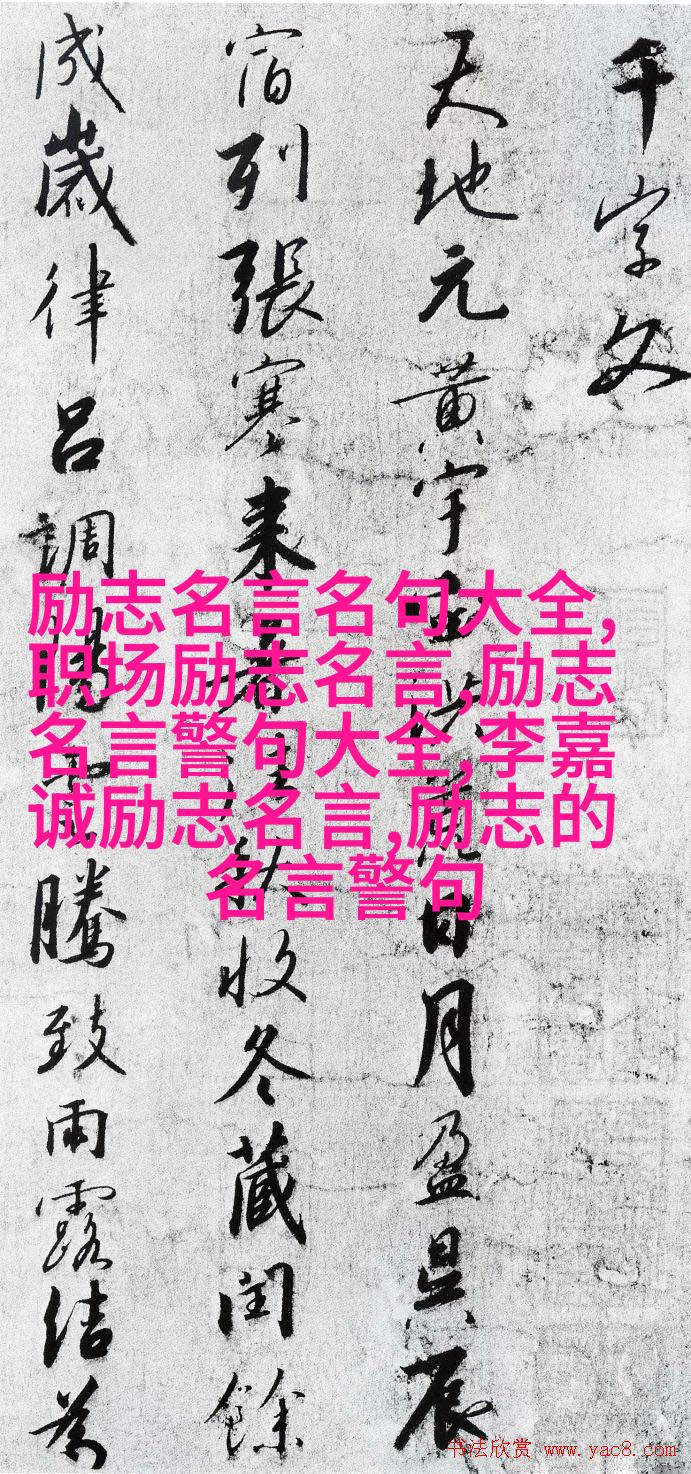 千字文
天地元黄宇宙洪荒日月盈昃辰
宿列張寒来暑往秋收冬藏閏餘
成歲律吕調陽雲騰致雨露結為
励志名言名句大全,
职场励志名言,励志
名言警句大全,李嘉
诚励志名言,励志的
名言警句
书法欣赏 www.yac8.com